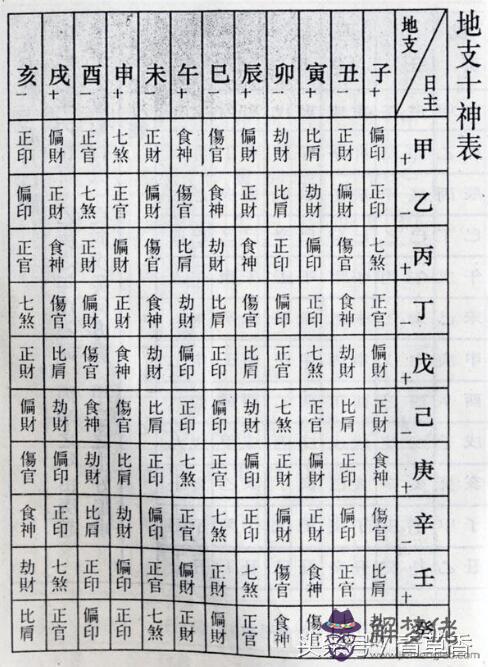 地支十神表
地支 日主 子十 丑一 寅十 卯一 辰十 巳一 午十 未一 申十 酉一 戌十 亥一
甲十 偏印 正財 比肩 劫財 偏財 傷官 食神 正財 七煞 正官 偏財 正印
乙一 正印 偏財 劫財 比肩 正財 食神 傷官 偏財 正官 七煞 正財 偏印
丙十 七煞 傷官 偏印 正印 食神 劫財 比肩 傷官 偏財 正財 食神 正官
丁一 正官 食神 正印 偏印 傷官 比肩 劫財 食神 正財 偏財 傷官 七煞
戊十 偏財 劫財 七煞 正官 比肩 正印 偏印 劫財 食神 傷官 比肩 正財
己一 正財 比肩 正官 七煞 劫財 偏印 正印 比肩 傷官 食神 劫財 偏財
庚十 食神 正印 偏財 正財 偏印 正官 七煞 正印 比肩 劫財 偏印 傷官
辛一 傷官 偏印 正財 偏財 正印 七煞 正官 偏印 劫財 比肩 正印 食神
壬十 比肩 正官 食神 傷官 七煞 正財 偏財 正官 偏印 正印 七煞 劫財
癸 傷官 食神 正官 偏財 正財 七煞 正印 偏印 正官 比肩
解夢佬